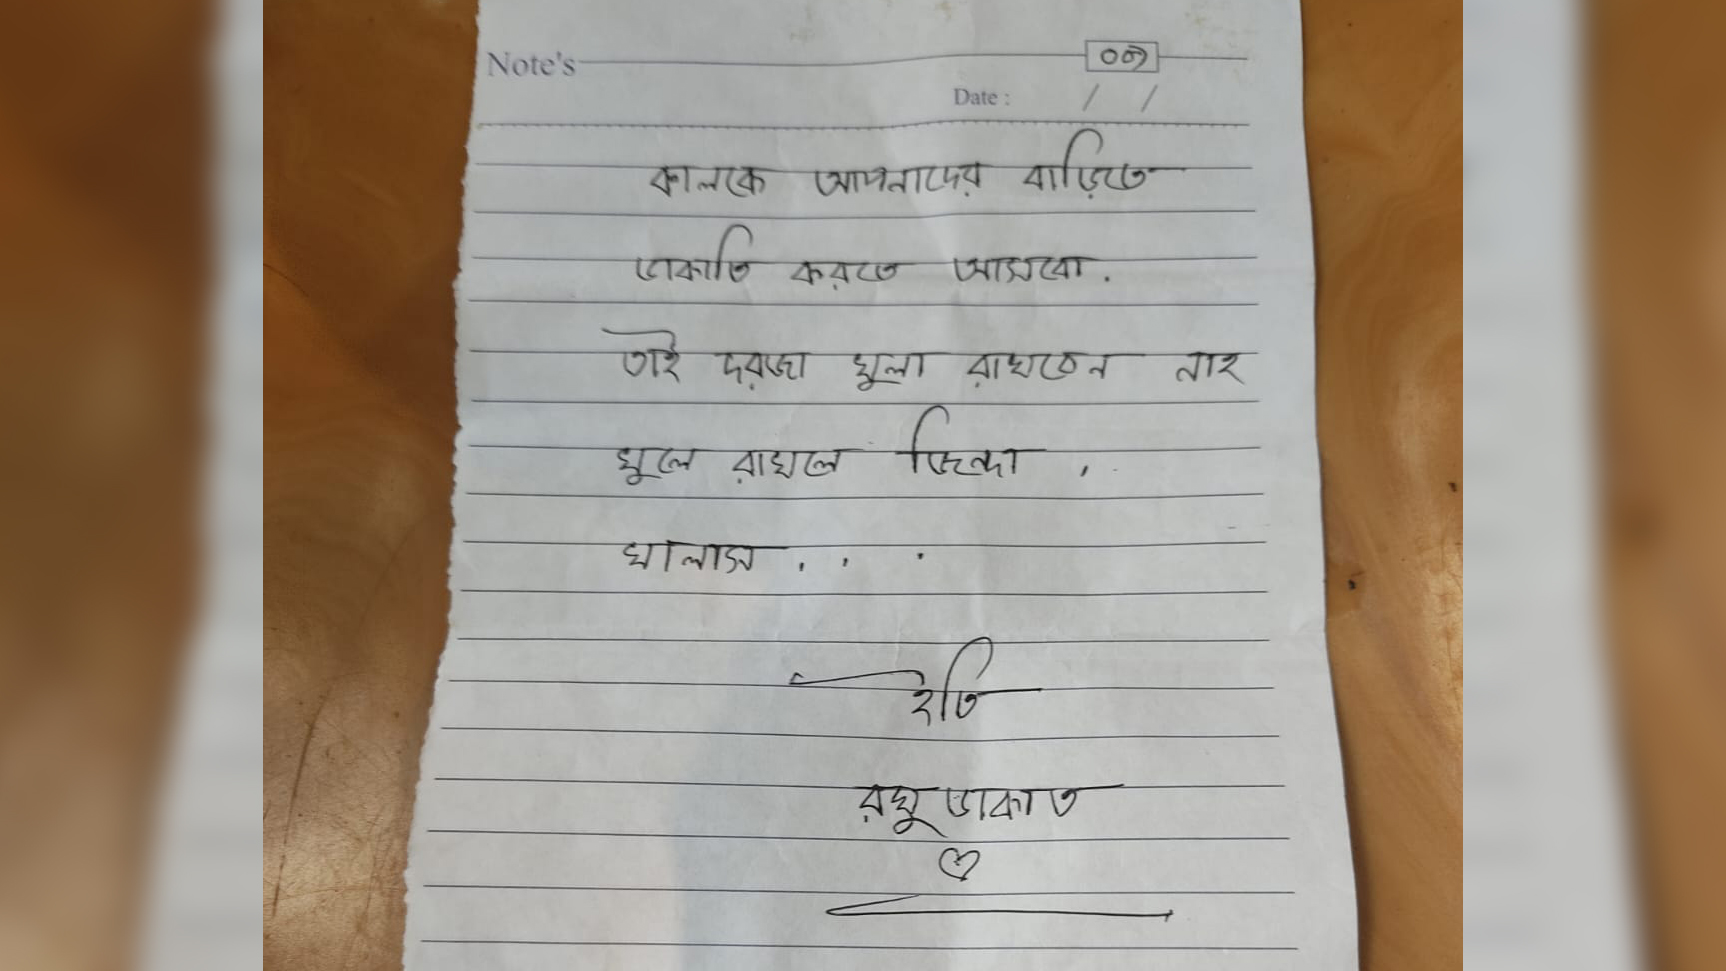 Note's
০৩
Date : / /
কালকে আপনাদের বাড়িতে
ডাকাতি করতে আসবো.
তাই দরজা খুলা রাখবেন নাহ
খুলে রাখলে জিন্দা .
খালাস . . .
ইতি
রঘু ডাকাত
♡